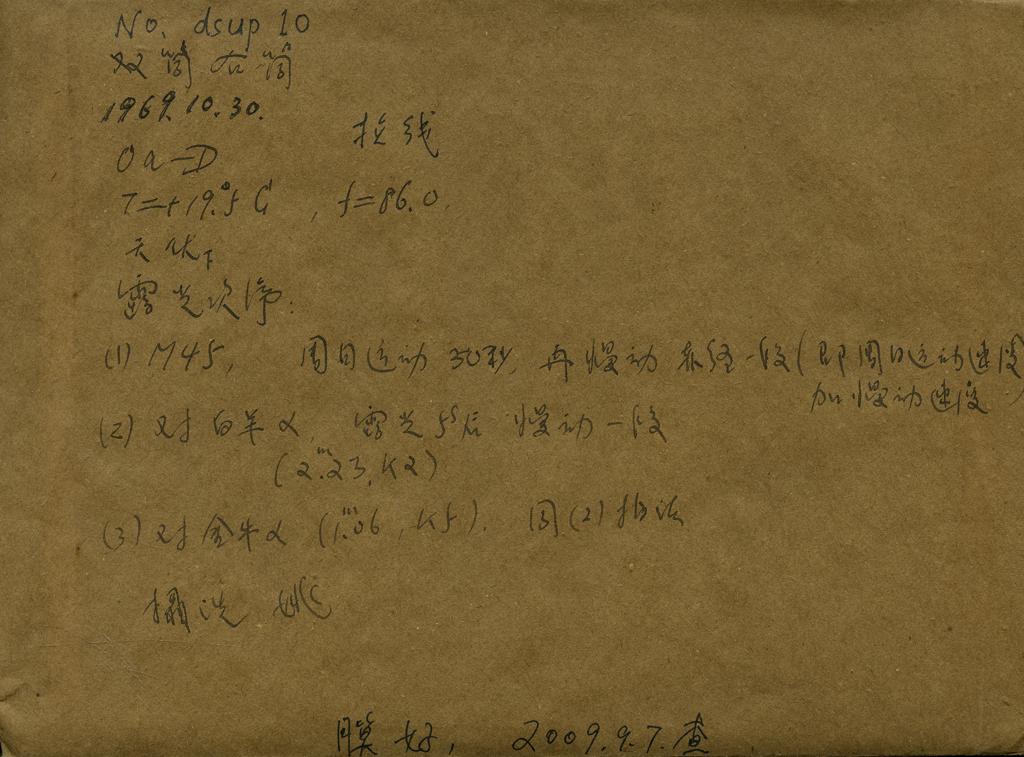 No. dsup 10
双筒右筒
1969.10.30.
拉线
Oa-D
T=+19.°5 C , f=86.0.
天状下
露光次序:
(1) M45, 周日运动 30秒, 再慢动 赤经一段(即周日运动速度
加慢动速度)
(2) 对白羊α, 露光5ˢ后 慢动一段
(2ᵐ.23, K2)
(3) 对金牛α (1ᵐ.06, K5). 同(2)拍法
摄洗 姚
膜好, 2009.9.7.查